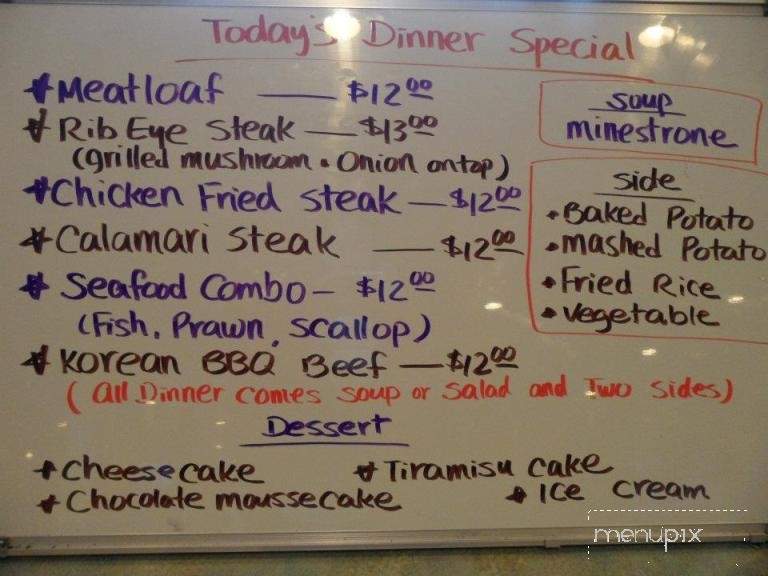 Today's Dinner Special
* Meatloaf — $12.00
* Rib Eye Steak — $13.00
(Grilled mushroom • Onion on top)
* Chicken Fried Steak — $12.00
* Calamari Steak — $12.00
* Seafood Combo — $12.00
(Fish, Prawn, Scallop)
* Korean BBQ Beef — $12.00
(All Dinner comes soup or salad and Two sides)
soup
minestrone
side
• Baked Potato
• mashed Potato
• Fried Rice
• vegetable
Dessert
* Cheesecake * Tiramisu cake
* Chocolate moussecake * Ice cream
menupix